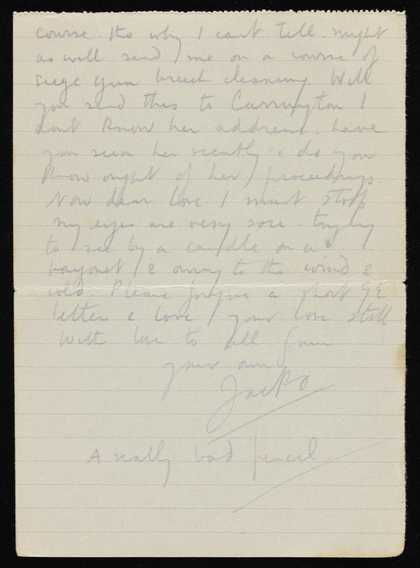 course. Tho why I cant tell. might
as well send me on a course of
siege gun breech cleaning. Will
you send this to Carrington I
dont know her address. have
you seen her recently & do you
know ought of her proceedings.
Now dear love I must stop
my eyes are very sore trying
to see by a candle on a
bayonet & owing to the wind &
cold. Please forgive a short
letter & love your love still
With love to all from
your own
Jacko
A really bad pencil.